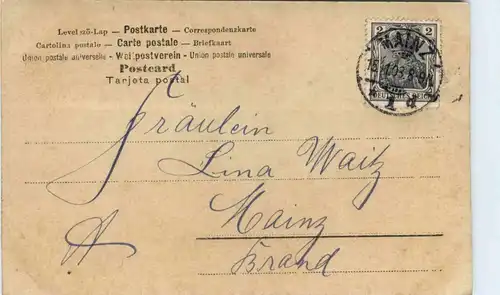 Levelező-Lap — Postkarte — Correspondenzkarte
Cartolina postale — Carte postale — Briefkaart
Union postale universelle — Weltpostverein — Union postale universale
Postcard
Tarjeta postal
2 2
MAINZ
DEUTSCHES REICH
Fräulein
Lina Waitz
Mainz
Brand